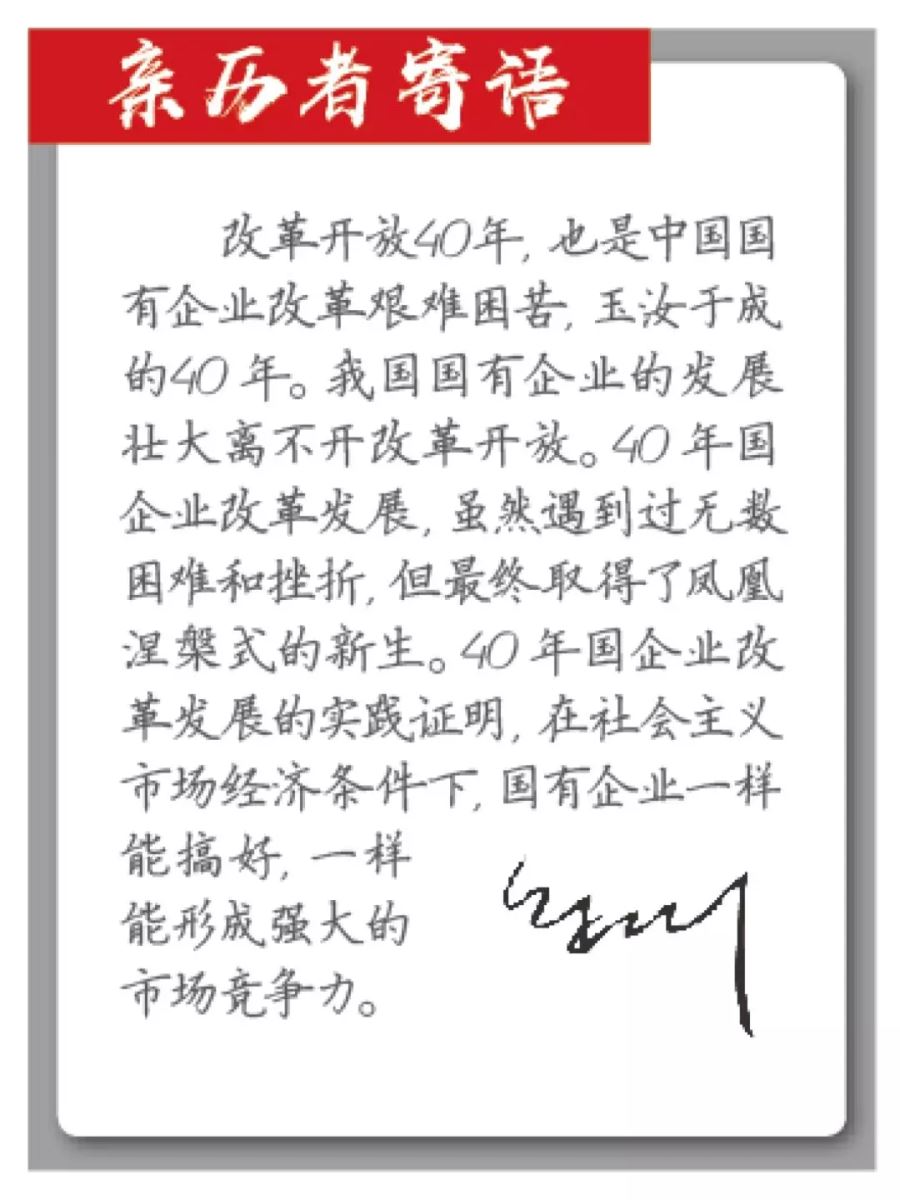 亲历者寄语
改革开放40年,也是中国国
有企业改革艰难困苦,玉汝于成
的40年。我国国有企业的发展
壮大离不开改革开放。40年国
企业改革发展,虽然遇到过无数
困难和挫折,但最终取得了凤凰
涅槃式的新生。40年国企业改
革发展的实践证明,在社会主义
市场经济条件下,国有企业一样
能搞好,一样
能形成强大的
市场竞争力。